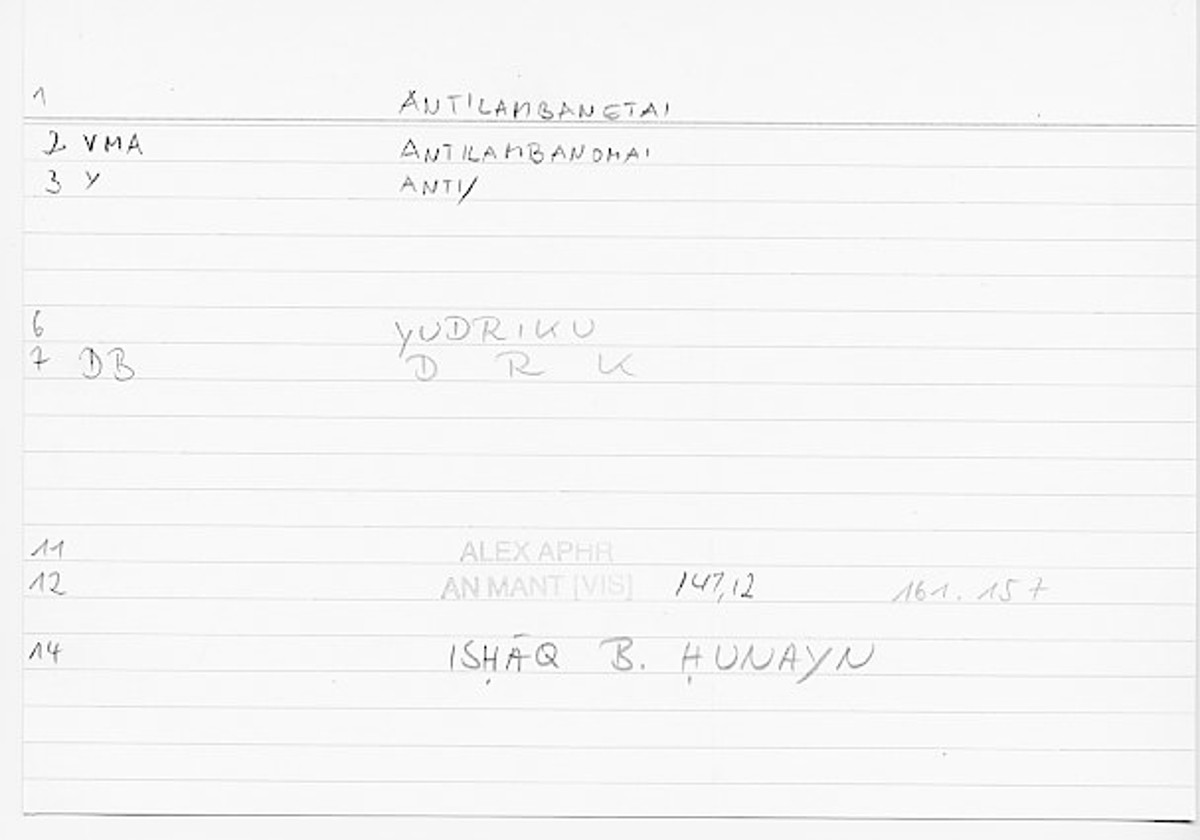 1 ANTILAMBANETAI
2 VMA ANTILAMBANOMAI
3 Y ANTI/
6 YUDRIKU
7 DB D R K
11 ALEX APHR
12 AN MANT [VIS] 147,12 161.157
14 ISḤĀQ B. ḤUNAYN